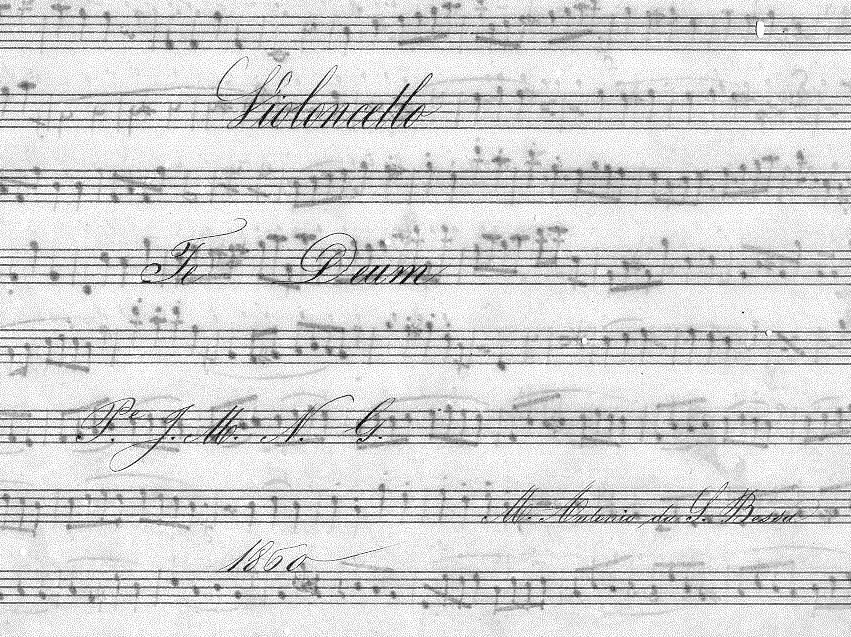 Violoncello
Te Deum
P.e J. M. N. G.
M. Antonio do S. Bessa
1860